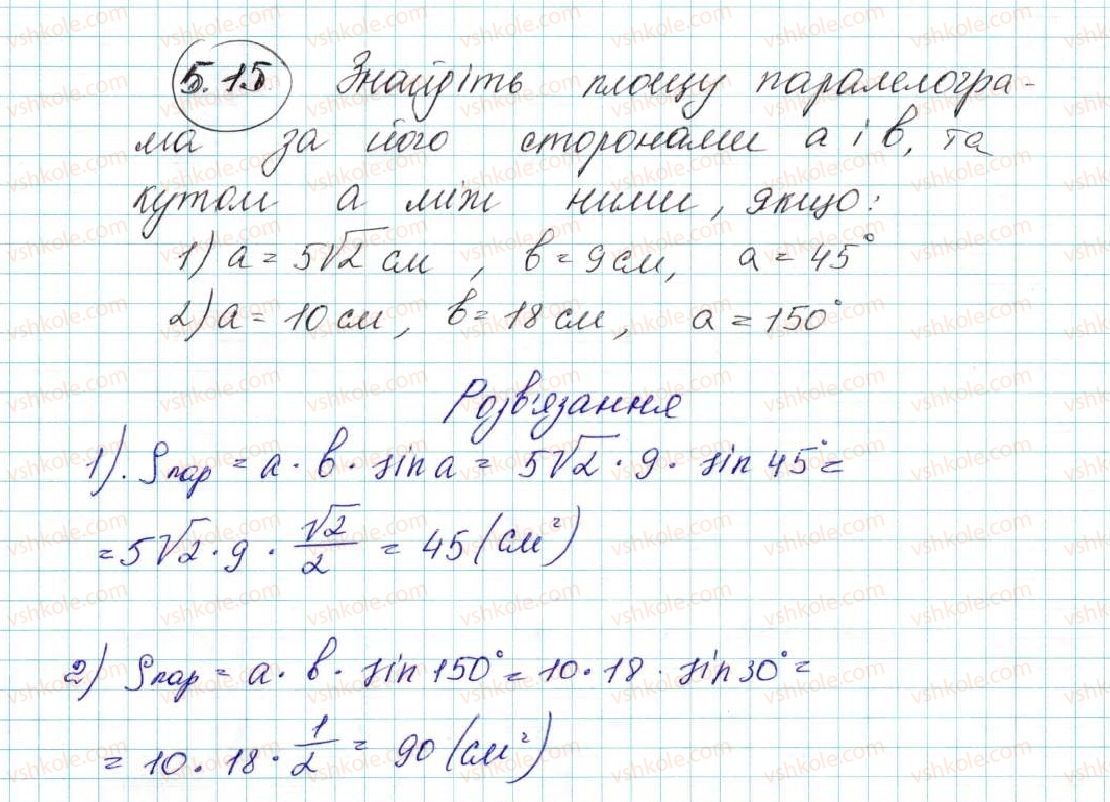 5.15 Знайдіть площу паралелогра-
ма за його сторонами a і b, та
кутом a між ними, якщо:
1) a = 5√2 см , b = 9 см, a = 45°
2) a = 10 см, b = 18 см, a = 150°
Розв'язання
1). Sпар = a · b · sin a = 5√2 · 9 · sin 45° =
= 5√2 · 9 · √2/2 = 45 (см²)
2) Sпар = a · b · sin 150° = 10 · 18 · sin 30° =
= 10 · 18 · 1/2 = 90 (см²)